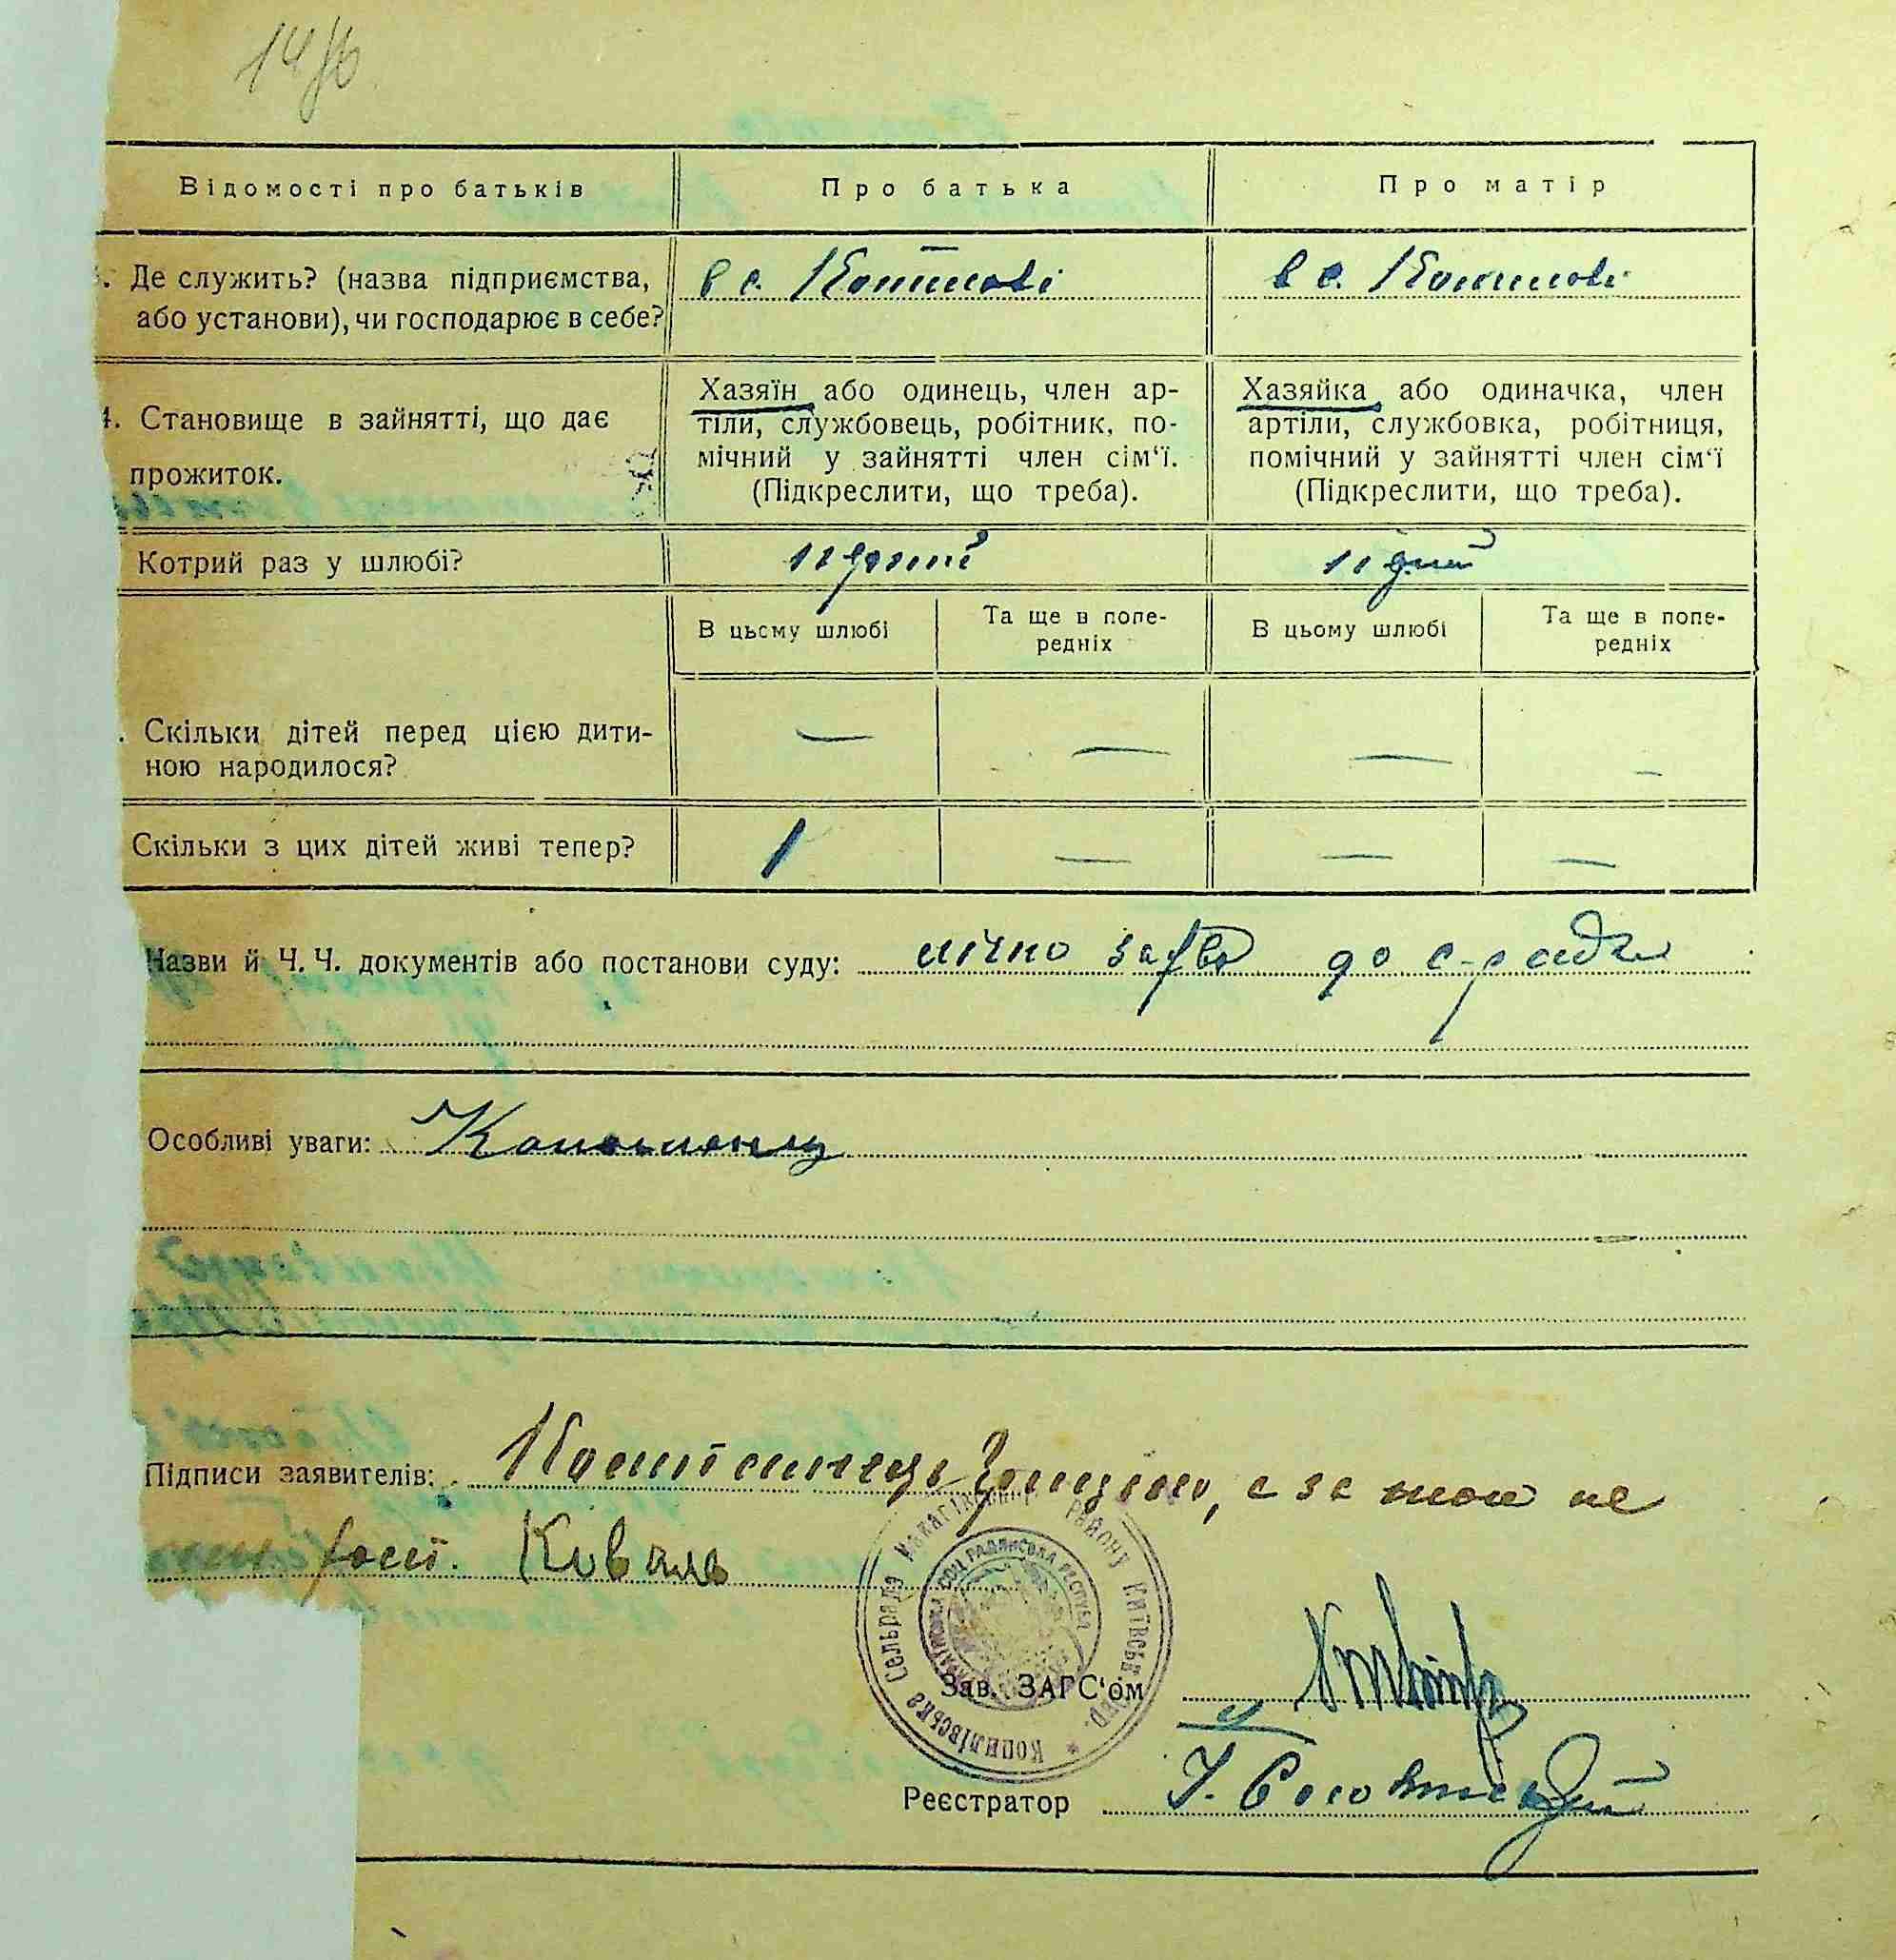 Відомості про батьків
Про батька
Про матір
Де служить? (назва підприємства, або установи), чи господарює в себе?
в с. Копилові
в с. Копилові
4. Становище в зайнятті, що дає прожиток.
Хазяїн або одинець, член ар-
тіли, службовець, робітник, по-
мічний у зайнятті член сім‘ї.
(Підкреслити, що треба).
Хазяйка або одиначка, член
артіли, службовка, робітниця,
помічний у зайнятті член сім‘ї
(Підкреслити, що треба).
Котрий раз у шлюбі?
В цьому шлюбі
Та ще в попе-
редніх
В цьому шлюбі
Та ще в попе-
редніх
Скільки дітей перед цією дити-
ною народилося?
— — — —
Скільки з цих дітей живі тепер?
1 — — —
Назви й Ч. Ч. документів або постанови суду: лічно заява до с-ради
Особливі уваги:
Підписи заявителів: а за його не
Коваль
Копилівська Сельрада Макарівського району Київськ. окр.
Українська Соц. Радянська Республ.
Зав. ЗАГС‘ом
Реєстратор